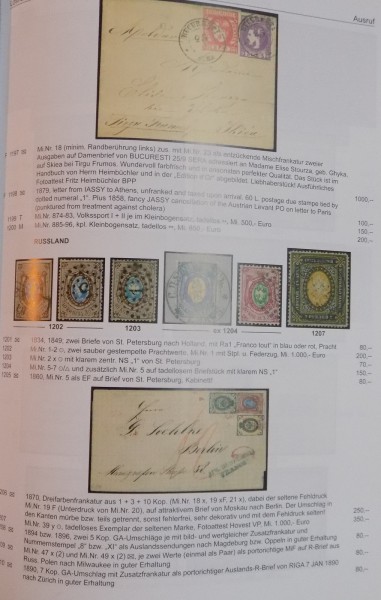 Ausruf
Mi.Nr. 18 (minim. Randberührung links) aus, mit Mi.Nr. 23 als entzückende Mischfrankatur zweier
Ausgaben auf Damenbrief von BUCURESTI 25/9 adressiert an Madame Elise Stourza, geb. Ghyka,
a Skiea bei Tirgu Frumos. Wundervoll farbfrisch und in absolut perfekter Qualität. Das Stück ist im
Handbuch von Herrn Heimbüchler und in der "Edition d'Or" abgebildet. Liebhaberstück! Ausführliches
Fotoattest Fritz Heimbüchler BPP 1000,--
1198 1879, letter from JASSY to Athens, unfranked and taxed upon arrival, 60 L. postage due stamps tied by
dotted numeral „1". Plus 1858, fancy JASSY cancellation of the Austrian Levant PO on letter to Paris
(punktured from treatment against cholera) 100,--
1199 T Mi.Nr. 874-83, Volkssport I + II je im Kleinbogensatz, tadellos **, Mi. 500,- Euro 150,--
1200 M Mi.Nr. 885-96, kpl. Kleinbogensatz, tadellos **, Mi. 600,- Euro 200,--
RUSSLAND
1202
1203
ex 1204
1207
1201 1834, 1849, zwei Briefe von St. Petersburg nach Holland, mit Ra1 „Franco tout" in blau oder rot, Pracht 80,--
1202 Mi.Nr. 1-2 ⊙, zwei sauber gestempelte Prachtwerte. Mi.Nr. 1 mit Stpl. u. Federzug. Mi. 1.000,- Euro 200,--
1203 Mi.Nr. 2 x ⊙ mit klarem zentr. NS „1" von St. Petersburg 70,--
1204 Mi.Nr. 5-7 ⊙/⊙, und zusätzlich Mi.Nr. 5 auf tadellosem Briefstück mit klarem NS „1" 150,--
1205 1860, Mi.Nr. 5 als EF auf Brief von St. Petersburg. Kabinett! 60,--
Berlin
1870, Dreifarbenfrankatur aus 1 + 3 + 10 Kop. (Mi.Nr. 18 x, 19 xF, 21 x), dabei der seltene Fehldruck
Mi.Nr. 19 F (Unterdruck von Mi.Nr. 20), auf attraktivem Brief von Moskau nach Berlin. Der Umschlag in
den Kanten mürbe bzw. teils getrennt, sonst fehlerfrei, sehr dekorativ und mit dem Fehldruck selten! 250,--
Mi.Nr. 39 y ⊙, tadelloses Exemplar der seltenen Marke. Fotoattest Hovest VP. Mi. 1.000,- Euro 350,--
1894 bzw. 1896, zwei 5 Kop. GA-Umschläge je mit bild- und wertgleicher Zusatzfrankatur und
Nummernstempel „8" bzw. „XI" als Auslandssendungen nach Magdeburg bzw. Oppeln in guter Erhaltung 80,--
Mi.Nr. 47 x (2) und Mi.Nr. 49 x (2), je zwei Werte (einmal als Paar) als portorichtige MiF auf R-Brief aus
Russ. Polen nach Milwaukee in guter Erhaltung 80,--
1890, 7 Kop. GA-Umschlag mit Zusatzfrankatur als portorichtiger Auslands-R-Brief von RIGA 7 JAN 1890
nach Zürich in guter Erhaltung 80,--